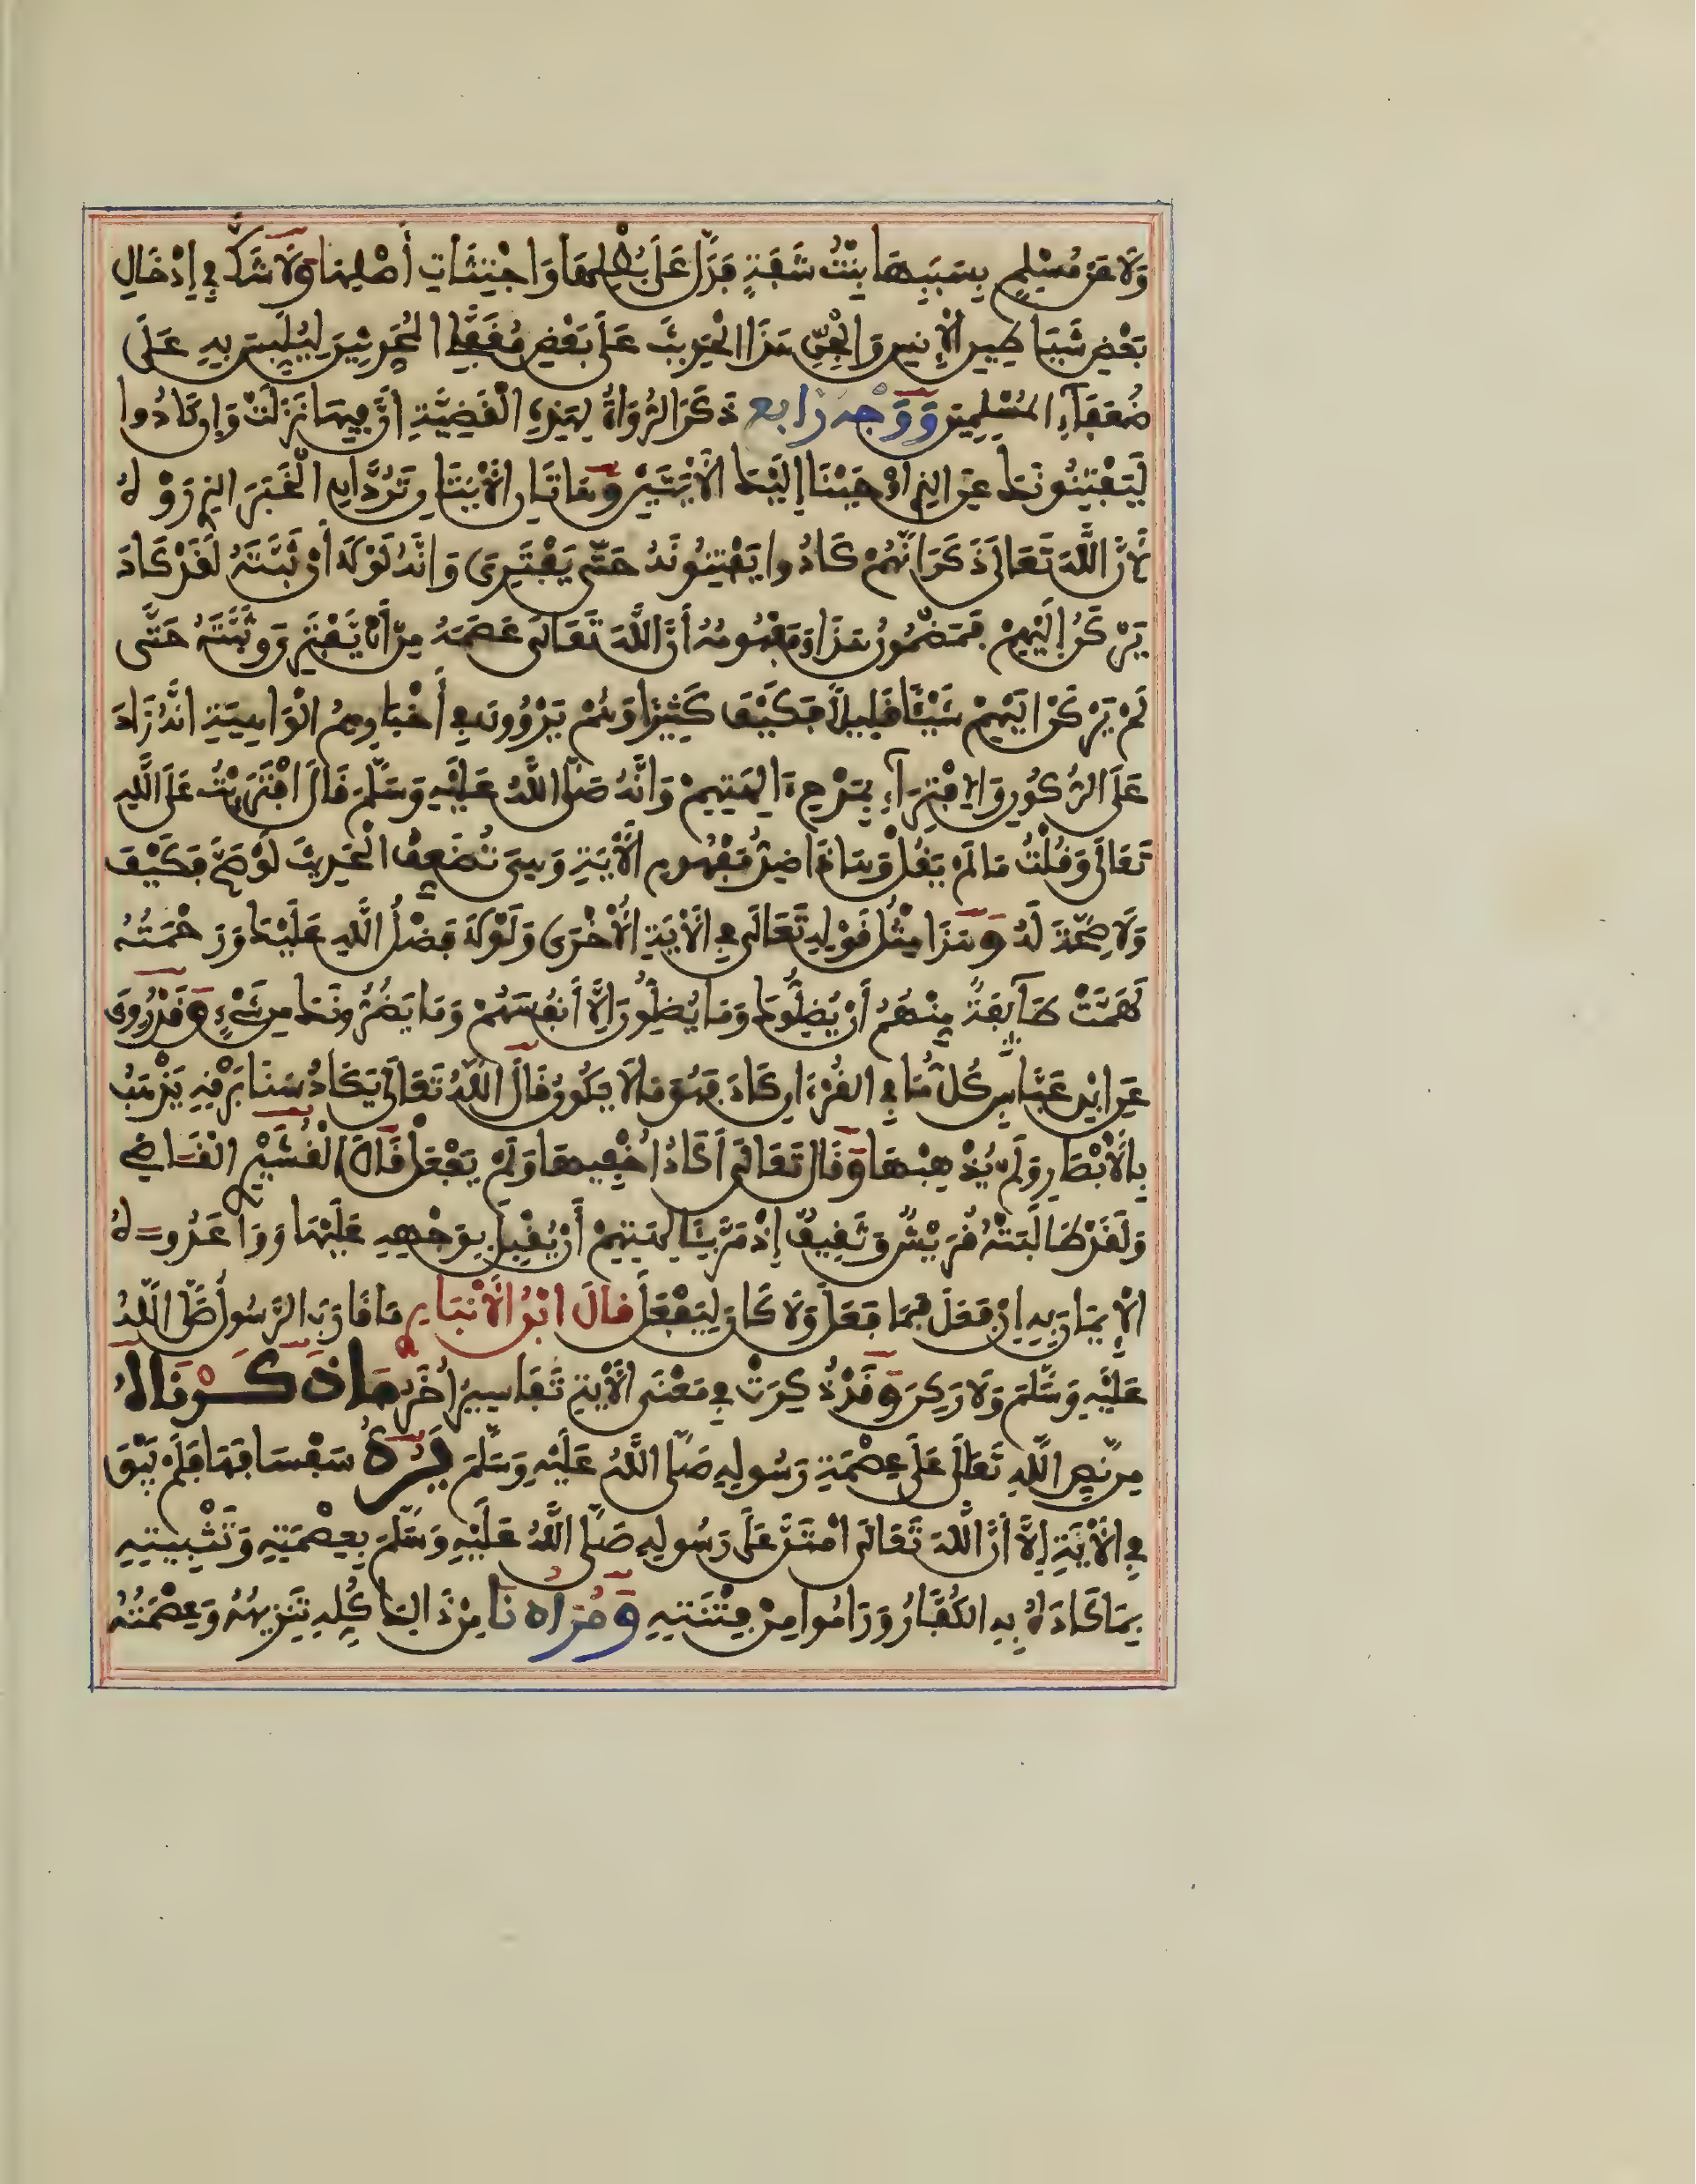 وَلَا عَنْ مُسْلِمٍ بِسَبَبِهَا بِنْتُ شَفَةٍ فَدَلَّ عَلَى بُطْلِهَا وَاجْتِثَاثِ أَصْلِهَا وَلَا شَكَّ فِي إِدْخَالِ
بَعْضِ شَيَاطِينِ الْإِنْسِ وَالْجِنِّ هَذَا الْحَدِيثَ عَلَى بَعْضِ مُغَفَّلِي الْمُحَدِّثِينَ لِيُلَبِّسَ بِهِ عَلَى
ضُعَفَاءِ الْمُسْلِمِينَ وَوَجْهٌ رَابِع ذَكَرَ الرُّوَاةُ لِهَذِهِ الْقَضِيَّةِ أَنَّ فِيهَا نَزَلَتْ وَإِن كَادُوا
لَيَفْتِنُونَكَ عَنِ الذِي أَوْحَيْنَا إِلَيْكَ الْآيَتَيْنِ وَهَاتَانِ الْآيَتَانِ تَرُدَّانِ الْخَبَرَ الذِي رَوَوْهُ
لِأَنَّ اللَّهَ تَعَالَى ذَكَرَ أَنَّهُمْ كَادُوا يَفْتِنُونَهُ حَتَّى يَفْتَرِىَ وَأَنَّهُ لَوْلَا أَنْ ثَبَّتَهُ لَقَدْ كَادَ
يَرْكَنُ إِلَيْهِمْ فَمَضْمُونُ هَذَا وَمَفْهُومُهُ أَنَّ اللَّهَ تَعَالَى عَصَمَهُ مِنْ أَنْ يَفْتَرِىَ وَثَبَّتَهُ حَتَّى
لَمْ يَرْكَنْ إِلَيْهِمْ شَيْئًا قَلِيلًا فَكَيْفَ كَثِيرًا وَهُمْ يَرْوُونَ فِي أَخْبَارِهِمُ الْوَاهِيَةِ أَنَّهُ زَادَ
عَلَى الرُّكُونِ وَالِافْتِرَاءِ بِمَدْحِ ءَالِهَتِهِمْ وَأَنَّهُ صَلَّى اللَّهُ عَلَيْهِ وَسَلَّمَ قَالَ افْتَرَيْتُ عَلَى اللَّهِ
تَعَالَى وَقُلْتُ مَا لَمْ يَقُلْ وَهَذَا ضِدُّ مَفْهُومِ الْآيَةِ وَهِيَ تُضَعِّفُ الْحَدِيثَ لَوْ صَحَّ فَكَيْفَ
وَلَا صِحَّةَ لَهُ وَهَذَا مِثْلُ قَوْلِهِ تَعَالَى فِي الْآيَةِ الْأُخْرَى وَلَوْلَا فَضْلُ اللَّهِ عَلَيْكَ وَرَحْمَتُهُ
لَهَمَّتْ طَآئِفَةٌ مِنْهُمْ أَنْ يُضِلُّوكَ وَمَا يُضِلُّونَ إِلَّا أَنْفُسَهُمْ وَمَا يَضُرُّونَكَ مِن شَيْءٍ وَقَدْ رُوِيَ
عَنِ ابْنِ عَبَّاسٍ كُلُّ مَا فِي الْقُرْءَانِ كَادَ فَهُوَ مَا لَا يَكُونُ قَالَ اللَّهُ تَعَالَى يَكَادُ سَنَا بَرْقِهِ يَذْهَبُ
بِالْأَبْصَارِ وَلَمْ يُذْهِبْهَا وَقَالَ تَعَالَى أَكَادُ أُخْفِيهَا وَلَمْ يَفْعَلْ قَالَ الْقُشَيْرِي الْقَاضِي
وَلَقَدْ طَالَبَتْهُ قُرَيْشٌ وَثَقِيفٌ إِذْ مَرَّ بِئَالِهَتِهِمْ أَنْ يُقْبِلَ بِوَجْهِهِ عَلَيْهَا وَوَاعَدُوهُ
الْإِيمَانَ بِهِ إِنْ فَعَلَ فَمَا فَعَلَ وَلَا كَانَ لِيَفْعَلَ قَالَ ابْنُ الْأَنْبَارِي مَا قَارَبَ الرَّسُولُ صَلَّى اللَّهُ
عَلَيْهِ وَسَلَّمَ وَلَا رَكَنَ وَقَدْ ذُكِرَتْ فِي مَعْنَى الْآيَةِ تَفَاسِيرُ أُخَرُ مَا ذَكَرْنَاهُ
مِن نَصِّ اللَّهِ تَعَالَى عَلَى عِصْمَةِ رَسُولِهِ صَلَّى اللَّهُ عَلَيْهِ وَسَلَّمَ يَرُدُّ سَفْسَافَهَا فَلَمْ يَبْقَ
فِي الْآيَةِ إِلَّا أَنَّ اللَّهَ تَعَالَى امْتَنَّ عَلَى رَسُولِهِ صَلَّى اللَّهُ عَلَيْهِ وَسَلَّمَ بِعِصْمَتِهِ وَتَثْبِيتِهِ
بِمَا كَادَهُ بِهِ الْكُفَّارُ وَرَامُوا مِنْ فِتْنَتِهِ وَمُرَادُنَا مِنْ ذَالِكَ كُلِّهِ تَنْزِيهُهُ وَعِصْمَتُهُ